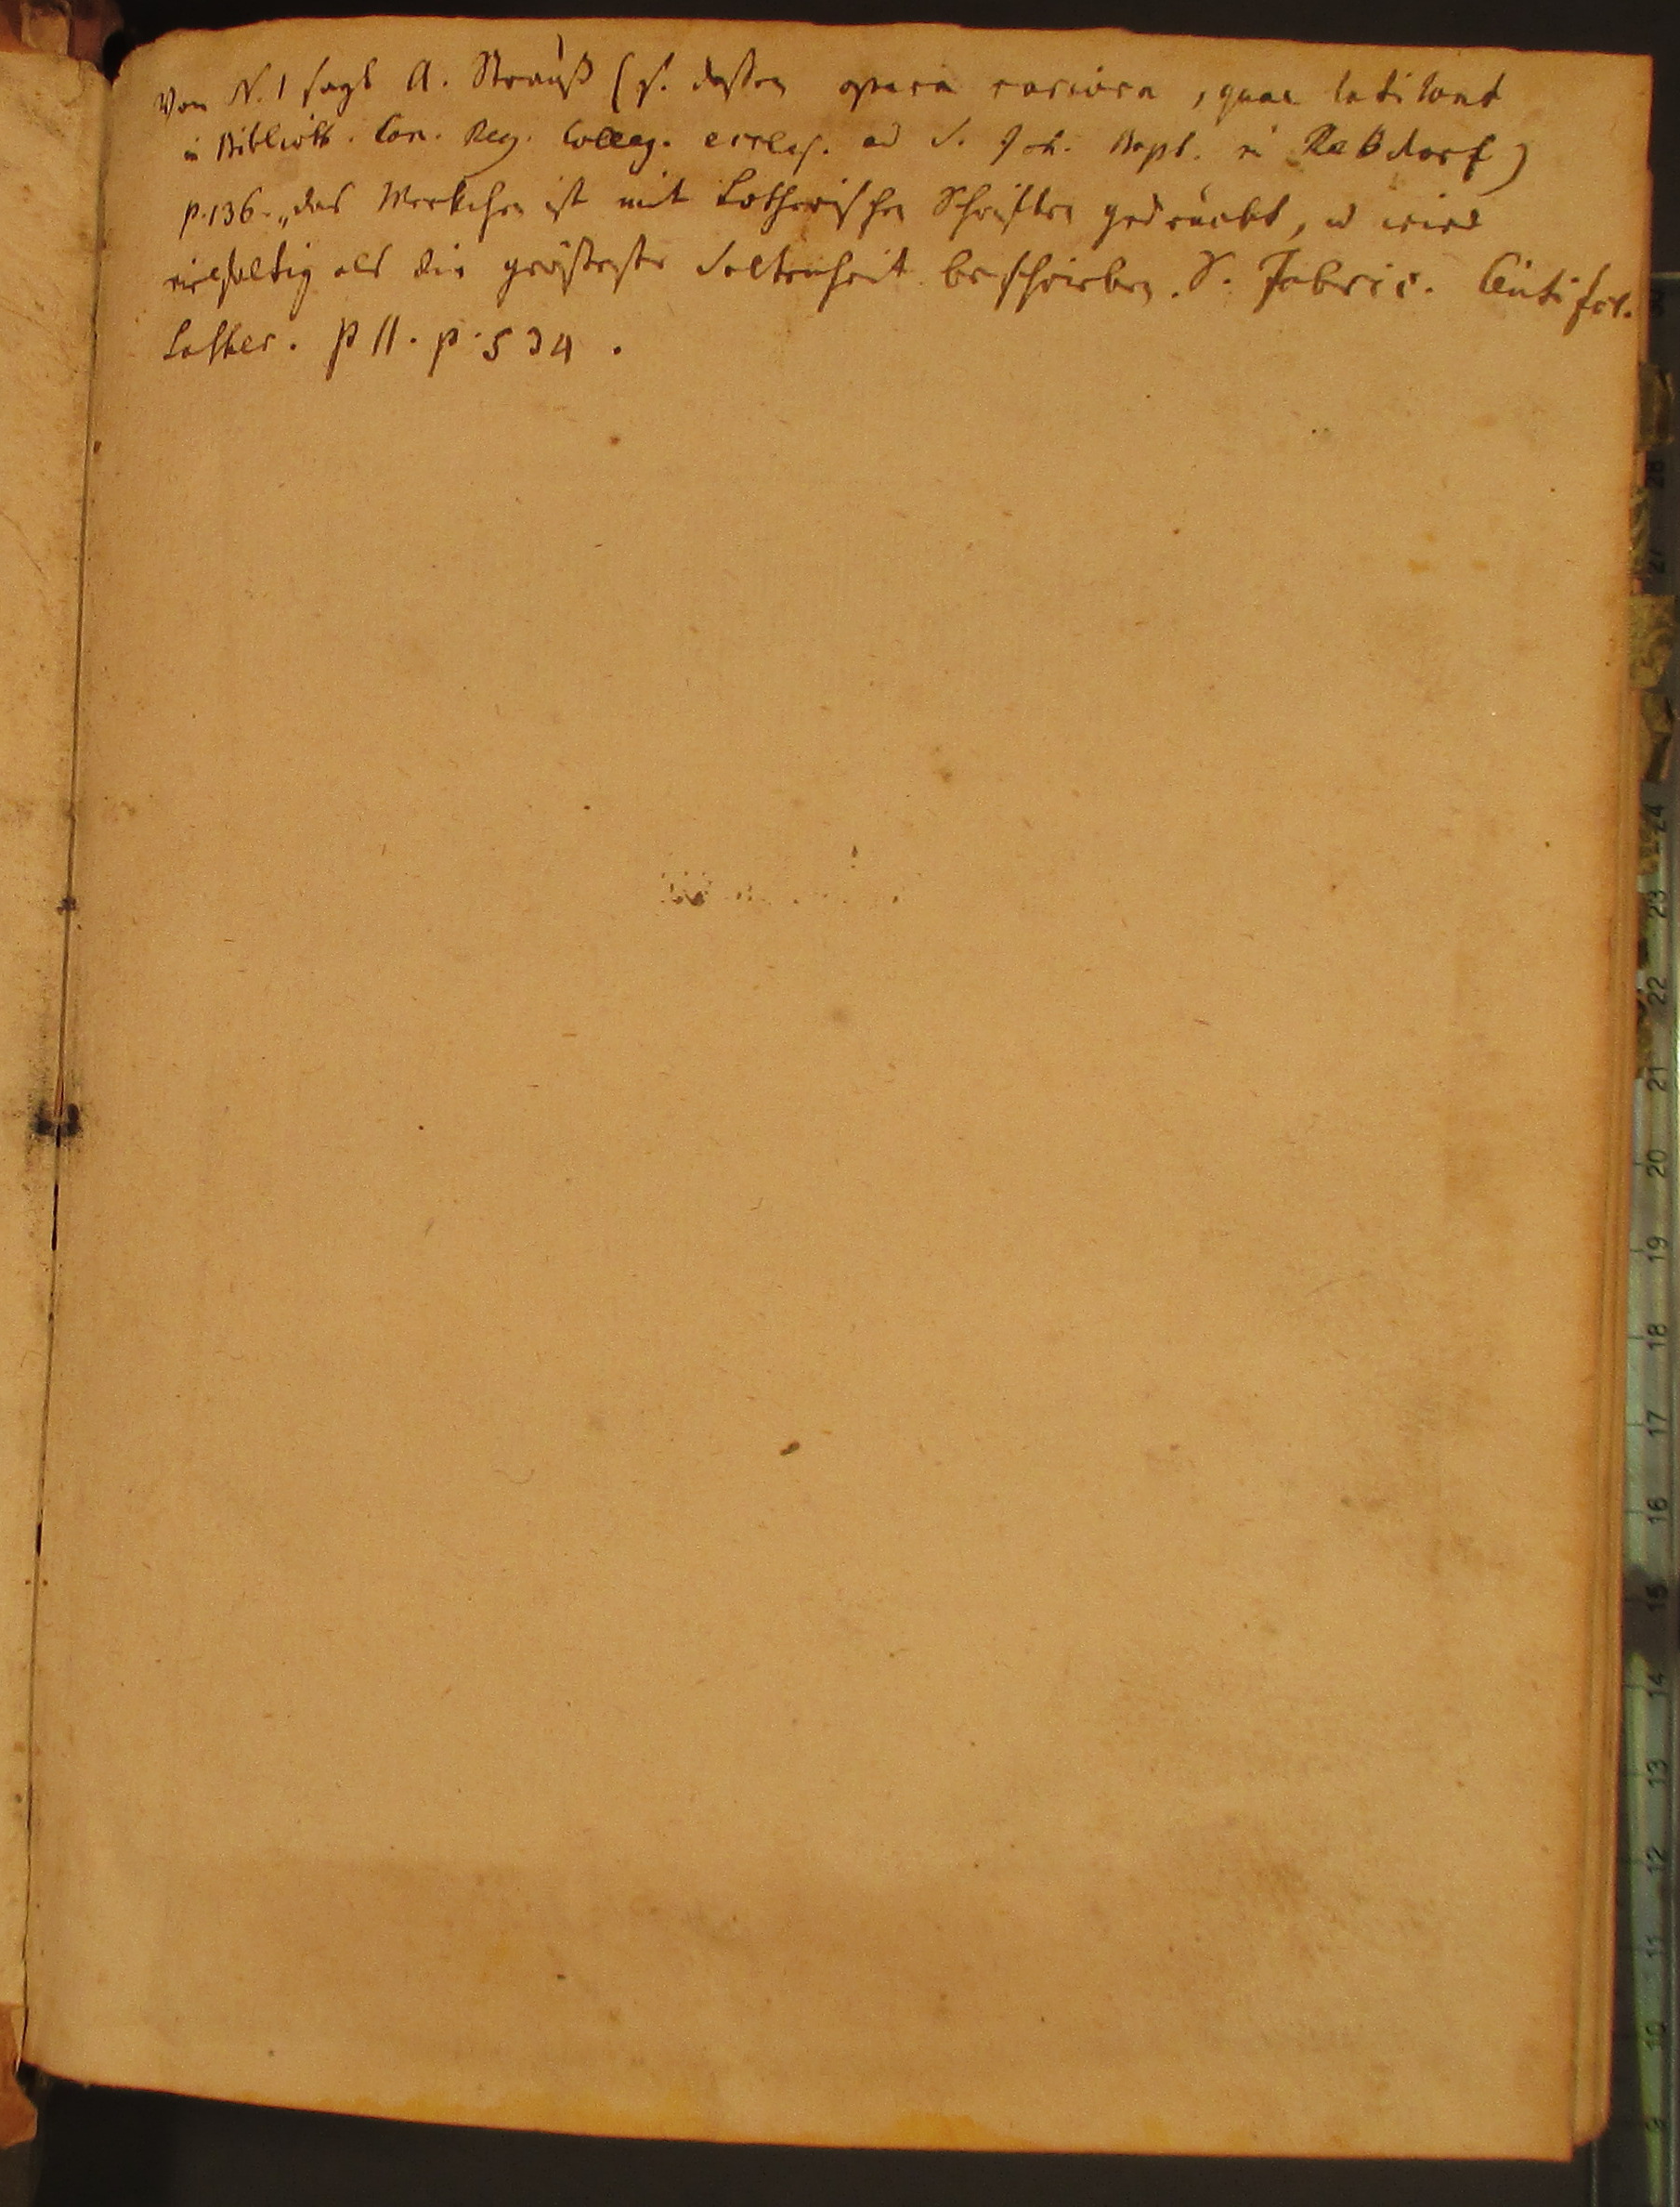 Von N. 1 sagt A. Strauß (s. dessen opera rariora, quae latitant
in Biblioth. Can. Reg. Colleg. eccles. ad S. Joh. Bapt. in Rebdorf)
p. 136. „das Werkchen ist mit Lotherischen Schriften gedruckt, u wird
vielfaltig als die gröste Seltenheit beschrieben. S. Fabric. Centifol.
Luther. P II. p. 534.
9 10 11 12 13 14 15 16 17 18 19 20 21 22 23 24 27 28